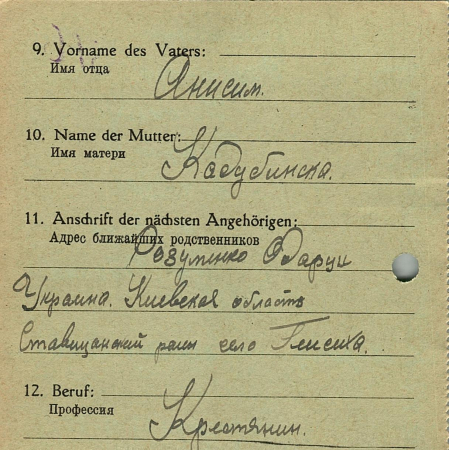 9. Vorname des Vaters:
Имя отца
Анисим.
10. Name der Mutter:
Имя матери
Кадубинска.
11. Anschrift der nächsten Angehörigen:
Адрес ближайших родственников
Розуменко Одарци
Украина. Киевская область
Ставищанский район село
12. Beruf:
Профессия
Крестянин.